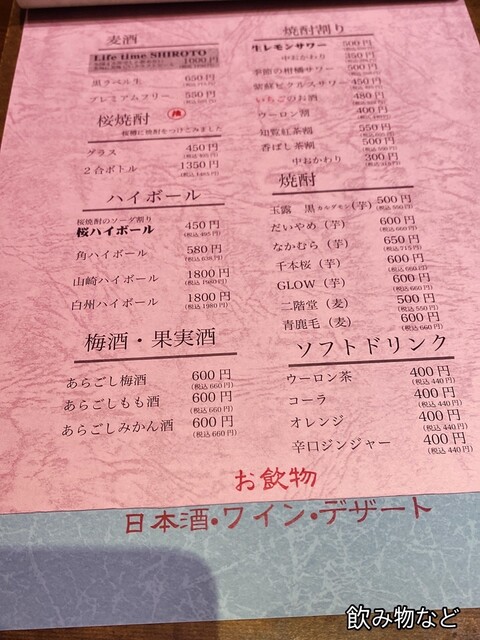 麦酒
Life time SHIROTO
1000円
黒ラベル生 650円
プレミアムフリー 550円
桜焼酎
桜樽に焼酎をつけこみました
グラス 450円
(税込 495円)
2合ボトル 1350円
(税込 1485円)
ハイボール
桜焼酎のソーダ割り
桜ハイボール 450円
(税込 495円)
角ハイボール 580円
(税込 638円)
山崎ハイボール 1800円
(税込 1980円)
白州ハイボール 1800円
(税込 1980円)
梅酒・果実酒
あらごし梅酒 600円
(税込 660円)
あらごしもも酒 600円
(税込 660円)
あらごしみかん酒 600円
(税込 660円)
焼酎割り
生レモンサワー 500円
中おかわり 350円
季節の柑橘サワー 500円
紫蘇ピクルスサワー 450円
いちごのお酒 480円
ウーロン割 400円
知覧紅茶割 550円
香ばし茶割 500円
中おかわり 300円
焼酎
玉露 黒カルダモン(芋) 500円
(税込 550円)
だいやめ(芋) 600円
(税込 660円)
なかむら(芋) 650円
(税込 715円)
千本桜(芋) 600円
(税込 660円)
GLOW(芋) 600円
(税込 660円)
二階堂(麦) 500円
(税込 550円)
青鹿毛(麦) 600円
(税込 660円)
ソフトドリンク
ウーロン茶 400円
(税込 440円)
コーラ 400円
(税込 440円)
オレンジ 400円
(税込 440円)
辛口ジンジャー 400円
(税込 440円)
お飲物
日本酒・ワイン・デザート
飲み物など